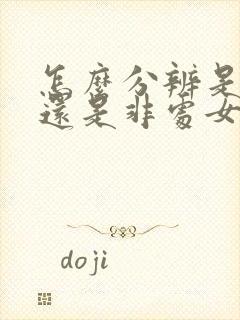 怎麼分辨是
還是非處女
doji